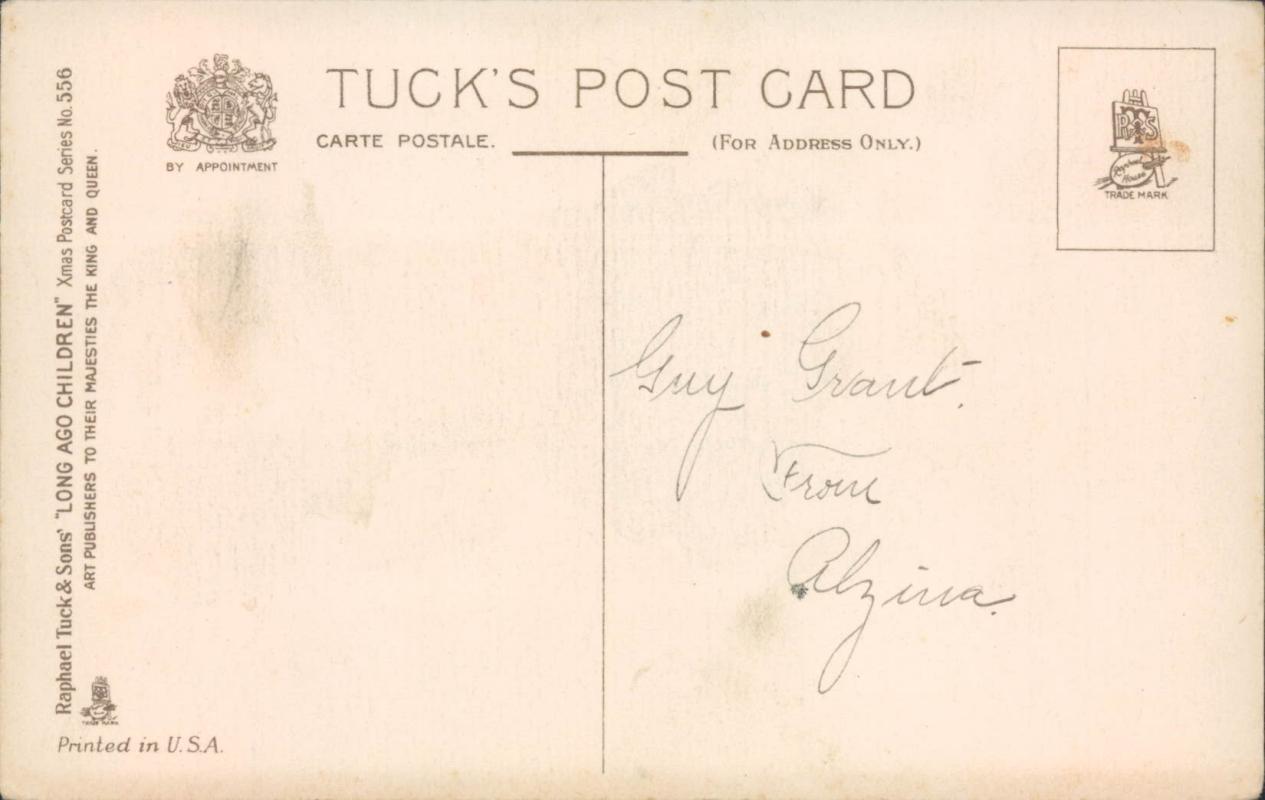 TUCK'S POST CARD
CARTE POSTALE.
(FOR ADDRESS ONLY.)
BY APPOINTMENT
Raphael Tuck & Sons' "LONG AGO CHILDREN" Xmas Postcard Series No. 556
ART PUBLISHERS TO THEIR MAJESTIES THE KING AND QUEEN.
TRADE MARK
Printed in U.S.A.
R T S
Raphael
House
TRADE MARK
Guy Grant.
From
Alzina.